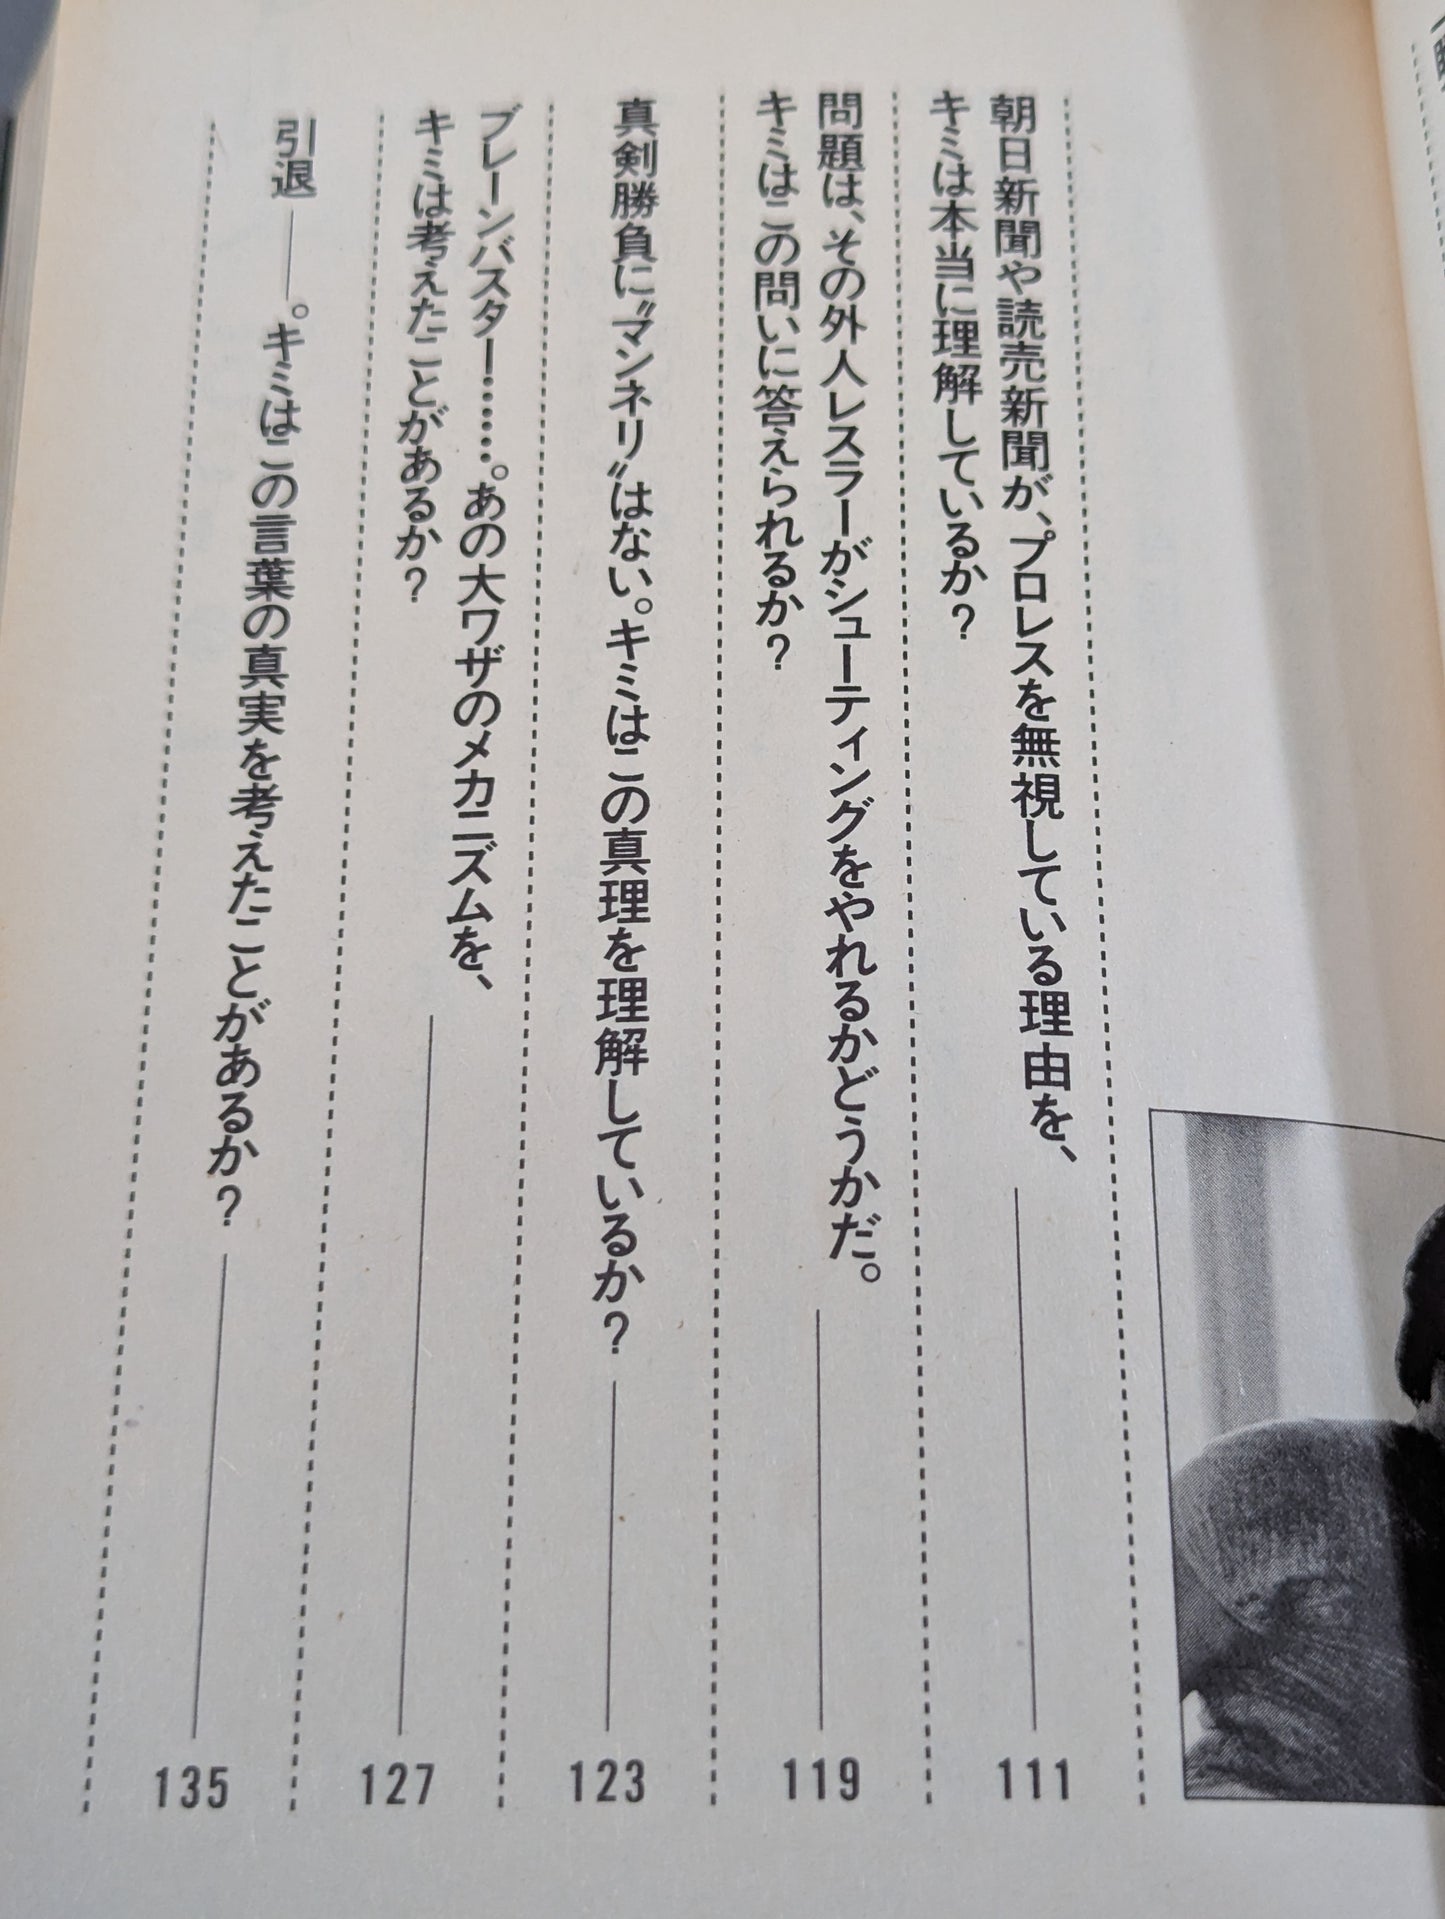 朝日新聞や読売新聞が、プロレスを無視している理由を、
キミは本当に理解しているか？
111
問題は、その外人レスラーがシューティングをやれるかどうかだ。
キミはこの問いに答えられるか？
119
真剣勝負に〝マンネリ〟はない。キミはこの真理を理解しているか？
123
ブレーンバスター……。あの大ワザのメカニズムを、
キミは考えたことがあるか？
127
引退――。キミはこの言葉の真実を考えたことがあるか？
135